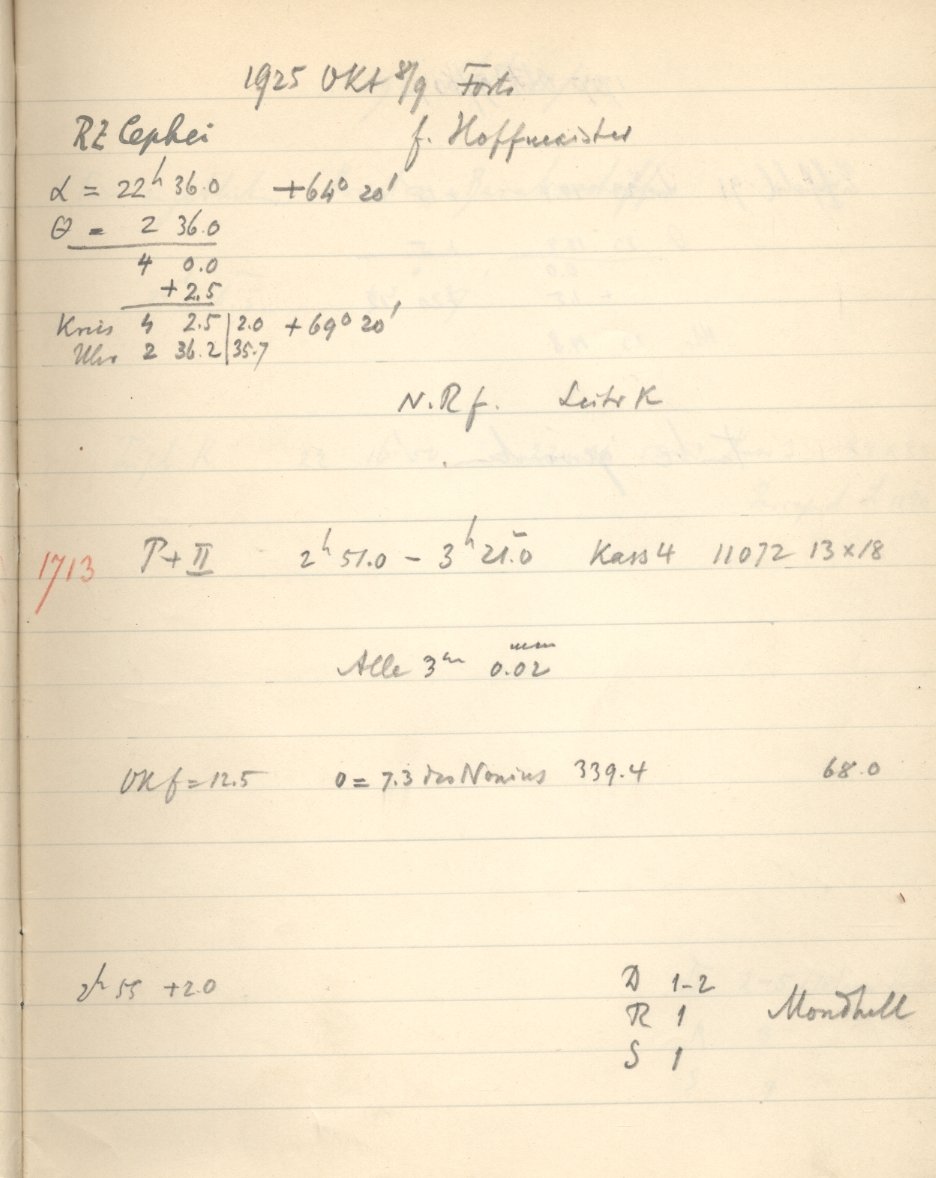 1925 Okt 8/9 Forts
RZ Cephei f. Hoffmeister
α = 22ʰ 36.0 +64° 20′
θ = 2 36.0
4 0.0
+2.5
Kreis 4 2.5 | 2.0 +69° 20′
Uhr 2 36.2 | 35.7
N.R f. Leitr K
1713 P + II 2ʰ 51.0 – 3ʰ 21.0 Kass 4 11072 13×18
Alle 3ᵐ 0.02 mm
OK f = 12.5 0 = 7.3 des Nonius 339.4 68.0
2ʰ 55 +2.0 D 1-2
R 1 Mondhell
S 1